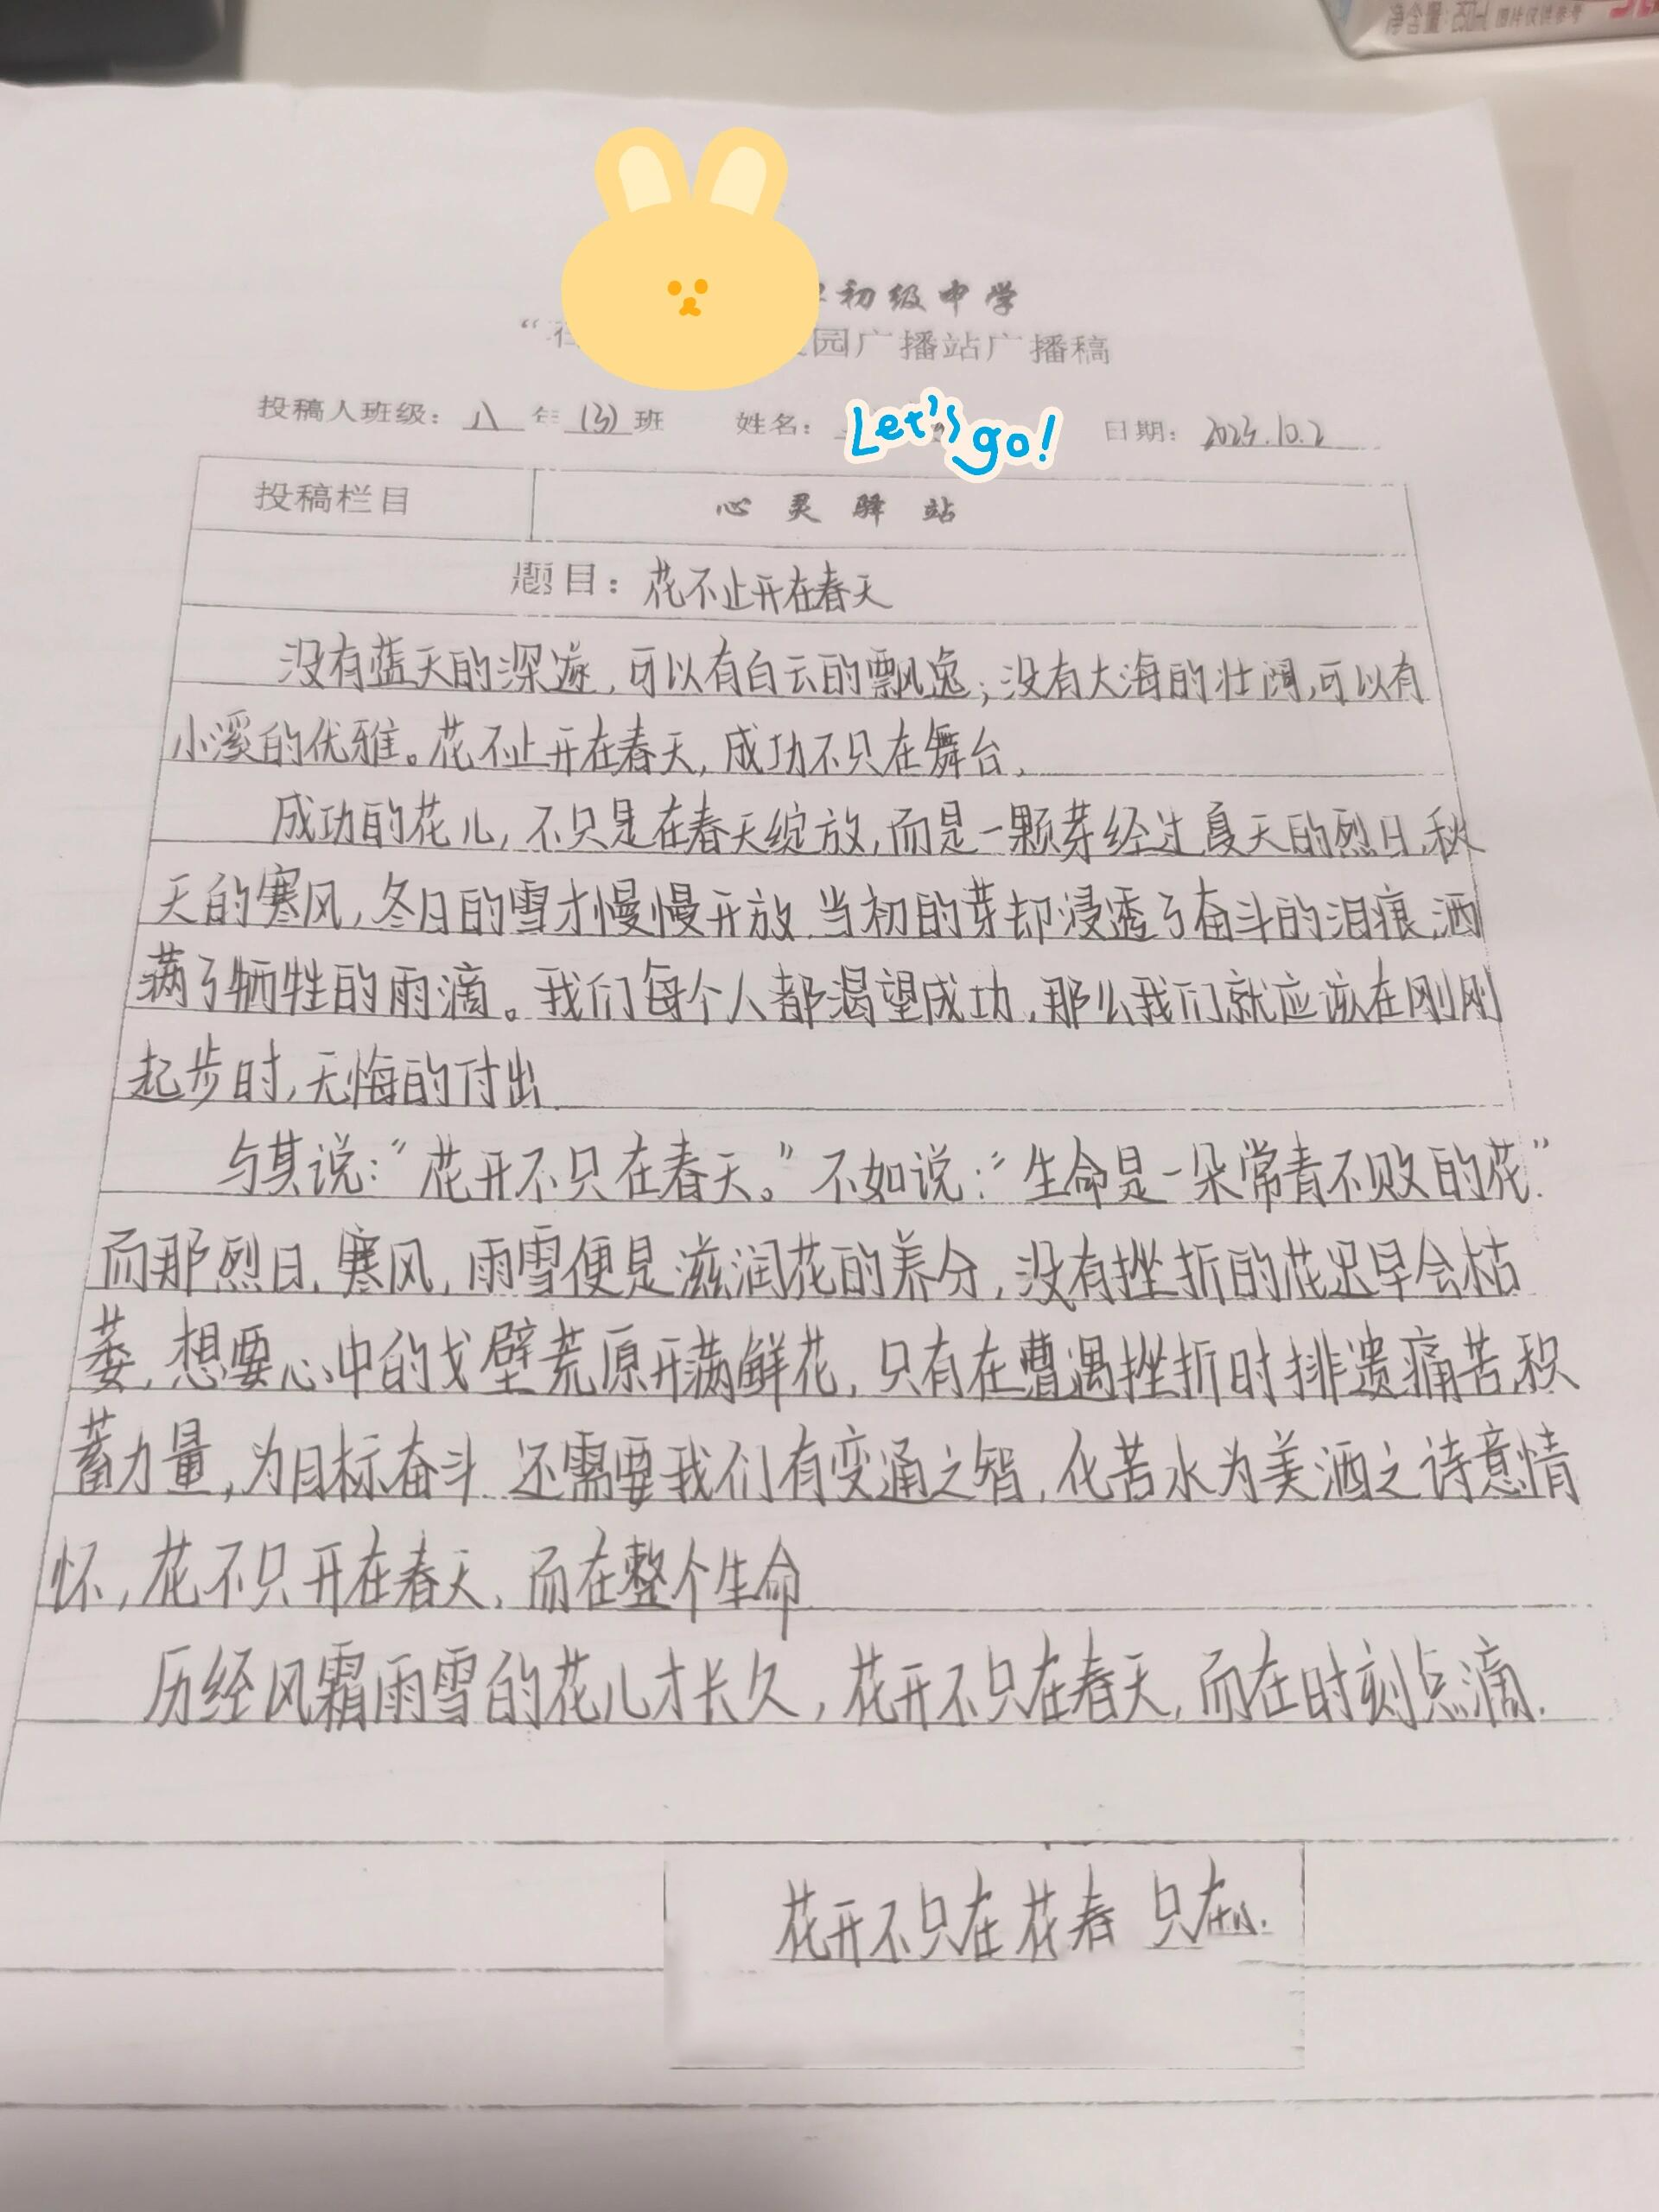 净含量:250mL 图片仅供参考
初级中学
园广播站广播稿
投稿人班级: 八 年 (3) 班 姓名: Let's go! 日期: 2023.10.2
投稿栏目 心灵驿站
题目: 花不止开在春天
没有蓝天的深邃,可以有白云的飘逸;没有大海的壮阔,可以有
小溪的优雅。花不止开在春天,成功不只在舞台.
成功的花儿,不只是在春天绽放,而是一颗芽经过夏天的烈日,秋
天的寒风,冬日的雪才慢慢开放.当初的芽却浸透了奋斗的泪痕,洒
满了牺牲的雨滴。我们每个人都渴望成功,那么我们就应该在刚刚
起步时,无悔的付出.
与其说:“花开不只在春天。”不如说:“生命是一朵常青不败的花”.
而那烈日,寒风,雨雪便是滋润花的养分,没有挫折的花迟早会枯
萎,想要心中的戈壁荒原开满鲜花,只有在遭遇挫折时排遗痛苦,积
蓄力量,为目标奋斗.还需要我们有变通之智,化苦水为美酒之诗意情
怀,花不只开在春天,而在整个生命.
历经风霜雨雪的花儿才长久,花开不只在春天,而在时刻点滴.
花开不只在花春 只在